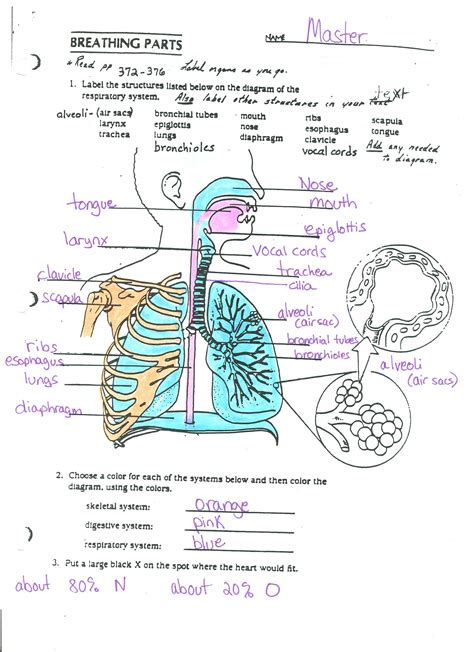 BREATHING PARTS
NAME Master
* Read pp 372-376 Label organs as you go.
1. Label the structures listed below on the diagram of the text
respiratory system. Also label other structures in your text
alveoli- (air sacs) bronchial tubes mouth ribs scapula
larynx epiglottis nose esophagus tongue
trachea lungs diaphragm clavicle Add any needed
bronchioles vocal cords to diagram.
Nose
tongue mouth
epiglottis
larynx vocal cords
trachea
clavicle cilia
scapula
alveoli
(air sac)
ribs bronchial tubes
esophagus bronchioles
alveoli
lungs (air sacs)
diaphragm
2. Choose a color for each of the systems below and then color the
diagram, using the colors.
skeletal system: orange
digestive system: pink
respiratory system: blue
3. Put a large black X on the spot where the heart would fit.
about 80% N about 20% O